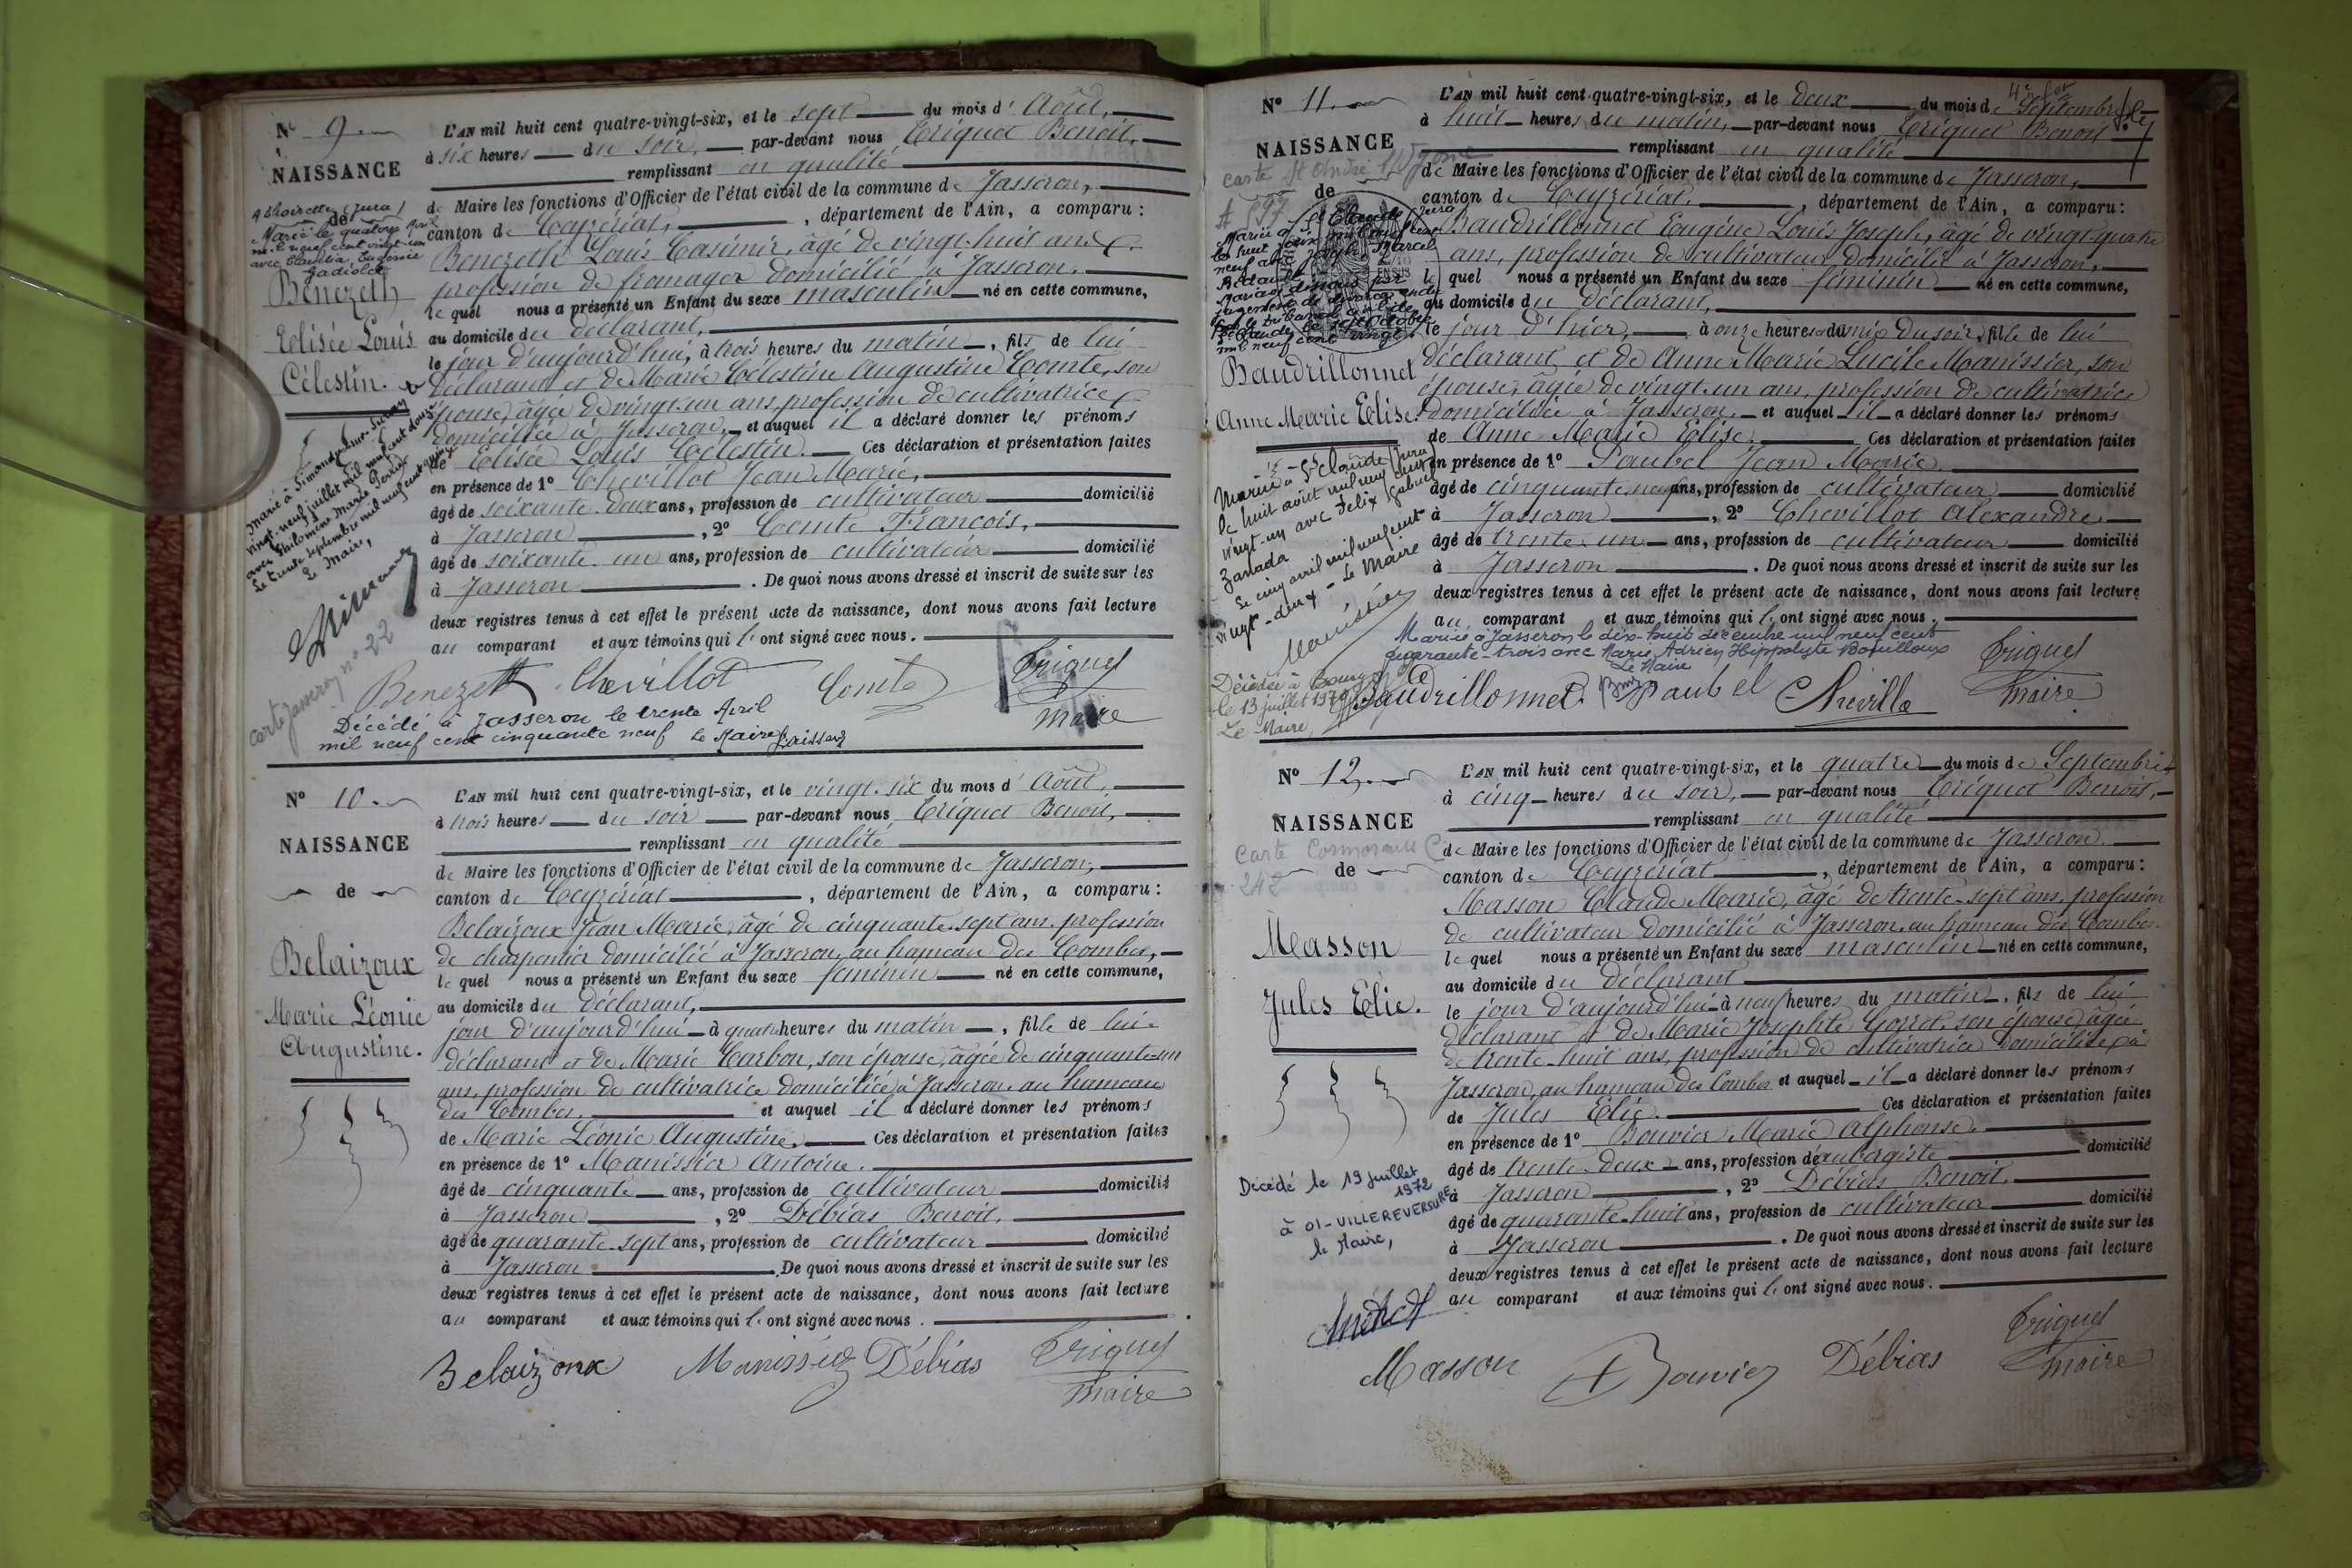 N° 9.
NAISSANCE
de
Benezeth
Elisée Louis
Célestin.
L'AN mil huit cent quatre-vingt-six, et le sept du mois d' Août,
à six heures du soir, par-devant nous Triquet Benoit,
remplissant en qualité
de Maire les fonctions d'Officier de l'état civil de la commune de Jasseron,
canton de Ceyzériat, département de l'Ain, a comparu :
Benezeth Louis Casimir, âgé de vingt-huit ans,
profession de fromager domicilié à Jasseron,
lequel nous a présenté un Enfant du sexe masculin né en cette commune,
au domicile du déclarant,
le jour d'aujourd'hui, à trois heures du matin, fils de lui
déclarant et de Marie Célestine Augustine Comte, son
épouse, âgée de vingt-un ans, profession de cultivatrice
domiciliée à Jasseron, et auquel il a déclaré donner les prénoms
de Elisée Louis Célestin. Ces déclaration et présentation faites
en présence de 1° Chevillot Jean Marie,
âgé de soixante-deux ans, profession de cultivateur domicilié
à Jasseron, 2° Comte François,
âgé de soixante-un ans, profession de cultivateur domicilié
à Jasseron. De quoi nous avons dressé et inscrit de suite sur les
deux registres tenus à cet effet le présent acte de naissance, dont nous avons fait lecture
au comparant et aux témoins qui l' ont signé avec nous.
Marié le quatorze Avril
mil neuf cent vingt-un
avec Claudia Eugénie
Gadiolet
vingt-neuf juillet mil neuf cent douze
avec Philomène Marie
Le trente septembre mil neuf cent quinze
Le Maire,
carte Jasseron n° 22
Benezeth Chevillot Comte Triquet
maire
Décédé à Jasseron le trente Avril
mil neuf cent cinquante neuf Le Maire
N° 10.
NAISSANCE
de
Belaizoux
Marie Léonie
Augustine.
L'AN mil huit cent quatre-vingt-six, et le vingt-six du mois d' Août,
à trois heures du soir par-devant nous Triquet Benoit,
remplissant en qualité
de Maire les fonctions d'Officier de l'état civil de la commune de Jasseron,
canton de Ceyzériat, département de l'Ain, a comparu :
Belaizoux Jean Marie, âgé de cinquante-sept ans, profession
de charpentier domicilié à Jasseron, au hameau des Combes,
lequel nous a présenté un Enfant du sexe féminin né en cette commune,
au domicile du déclarant,
jour d'aujourd'hui à quatre heures du matin, fille de lui
déclarant et de Marie Carbon, son épouse, âgée de cinquante-un
ans, profession de cultivatrice domiciliée à Jasseron au hameau
des Combes, et auquel il a déclaré donner les prénoms
de Marie Léonie Augustine. Ces déclaration et présentation faites
en présence de 1° Manissier Antoine.
âgé de cinquante ans, profession de cultivateur domicilié
à Jasseron, 2° Débias Benoit,
âgé de quarante-sept ans, profession de cultivateur domicilié
à Jasseron. De quoi nous avons dressé et inscrit de suite sur les
deux registres tenus à cet effet le présent acte de naissance, dont nous avons fait lecture
au comparant et aux témoins qui l' ont signé avec nous.
Belaizoux Manissier Débias Triquet
maire
N° 11.
NAISSANCE
de
Baudrillonnet
Anne Marie Elise.
L'AN mil huit cent quatre-vingt-six, et le deux du mois de Septembre
à huit heures du matin, par-devant nous Triquet Benoit
remplissant en qualité
de Maire les fonctions d'Officier de l'état civil de la commune de Jasseron,
canton de Ceyzériat, département de l'Ain, a comparu :
Baudrillonnet Eugène Louis Joseph, âgé de vingt-quatre
ans, profession de cultivateur domicilié à Jasseron,
lequel nous a présenté un Enfant du sexe féminin né en cette commune,
au domicile du déclarant,
le jour d'hier, à onze heures du soir, fille de lui
déclarant et de Anne Marie Lucile Manissier, son
épouse, âgée de vingt-un ans, profession de cultivatrice
domiciliée à Jasseron, et auquel il a déclaré donner les prénoms
de Anne Marie Elise. Ces déclaration et présentation faites
en présence de 1° Paubel Jean Marie
âgé de cinquante-neuf ans, profession de cultivateur domicilié
à Jasseron, 2° Chevillot Alexandre
âgé de trente-un ans, profession de cultivateur domicilié
à Jasseron. De quoi nous avons dressé et inscrit de suite sur les
deux registres tenus à cet effet le présent acte de naissance, dont nous avons fait lecture
au comparant et aux témoins qui l' ont signé avec nous.
Mariée à St Claude Jura
le huit août mil neuf cent
vingt-un avec Félix Gabriel
Zanada
Le cinq avril mil neuf cent
vingt-deux - Le Maire
Mariée à Jasseron le dix-huit décembre mil neuf cent
quarante-trois avec Marie Adrien Hippolyte Bouilloux
Le Maire
Décédée à Bourg
le 13 juillet 1970
Le Maire
Baudrillonnet Paubel Chevillot Triquet
maire
N° 12.
NAISSANCE
de
Masson
Jules Elie.
L'AN mil huit cent quatre-vingt-six, et le quatre du mois de Septembre
à cinq heures du soir, par-devant nous Triquet Benoit,
remplissant en qualité
de Maire les fonctions d'Officier de l'état civil de la commune de Jasseron.
canton de Ceyzériat, département de l'Ain, a comparu :
Masson Claude Marie, âgé de trente-sept ans, profession
de cultivateur domicilié à Jasseron, au hameau des Combes.
lequel nous a présenté un Enfant du sexe masculin né en cette commune,
au domicile du déclarant
le jour d'aujourd'hui à neuf heures du matin, fils de lui
déclarant et de Marie Josephte Gorret, son épouse âgée
de trente-huit ans, profession de cultivatrice domiciliée à
Jasseron, au hameau des Combes et auquel il a déclaré donner les prénoms
de Jules Elie. Ces déclaration et présentation faites
en présence de 1° Bouvier Marie Alphonse.
âgé de trente-deux ans, profession de aubergiste domicilié
à Jasseron, 2° Débias Benoit,
âgé de quarante-huit ans, profession de cultivateur domicilié
à Jasseron. De quoi nous avons dressé et inscrit de suite sur les
deux registres tenus à cet effet le présent acte de naissance, dont nous avons fait lecture
au comparant et aux témoins qui l' ont signé avec nous.
Décédé le 19 juillet
1972
à 01-VILLEREVERSURE
le Maire,
Masson Bouvier Débias Triquet
maire